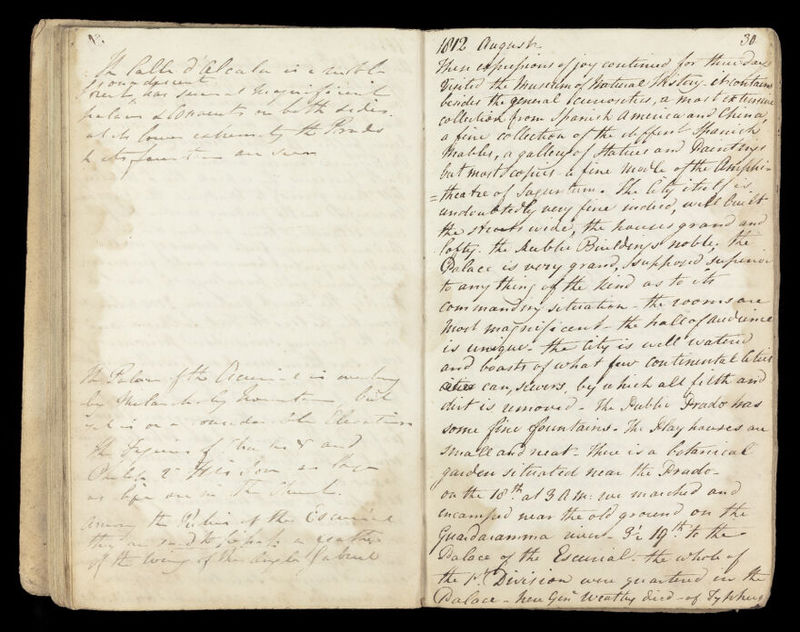 The Calle d'Alcala is a noble
one descent
over it has several magnificent
palaces & Convents on both sides.
at its lower extremity the Prado
& its fountains are seen
The Palace of the Escurial is
by but
yet is on a considerable Elevation
The Figures of Charles 5 and
Philip 2d His Son as large
as life are in the Church.
Among the Relics of the Escurial
they are said to possess a feather
of the wing of the Angel Gabriel
1812 August. 30
These expressions of joy continued for three days
Visited the Museum of Natural History. it contains
besides the general curiosities, a most extensive
collection from Spanish America and China,
a fine collection of the different Spanish
Marbles, a gallery of Statues and Paintings
but most copies a fine Model of the Amphi=
=theatre of Saguntum. The City itself is
undoubtedly very fine indeed, well built
the streets wide, the houses grand and
lofty. the Public Buildings noble, the
Palace is very grand, supposed superior
to any thing of the kind as to its
commanding situation - the rooms are
most magnificent - the hall of audience
is unique. the City is well watered
and boasts of what few Continental Cities
can, sewers, by which all filth and
dirt is removed - The Public Prado has
some fine fountains. The Play houses are
small and neat - there is a botanical
garden situated near the Prado -
on the 18th at 3 A M: we marched and
encamped near the old ground on the
Guadaramma river. 19th to the
Palace of the Escurial - the whole of
the 1st Division were quartered in the
Palace - here Genl Wheatley died - of Typhus